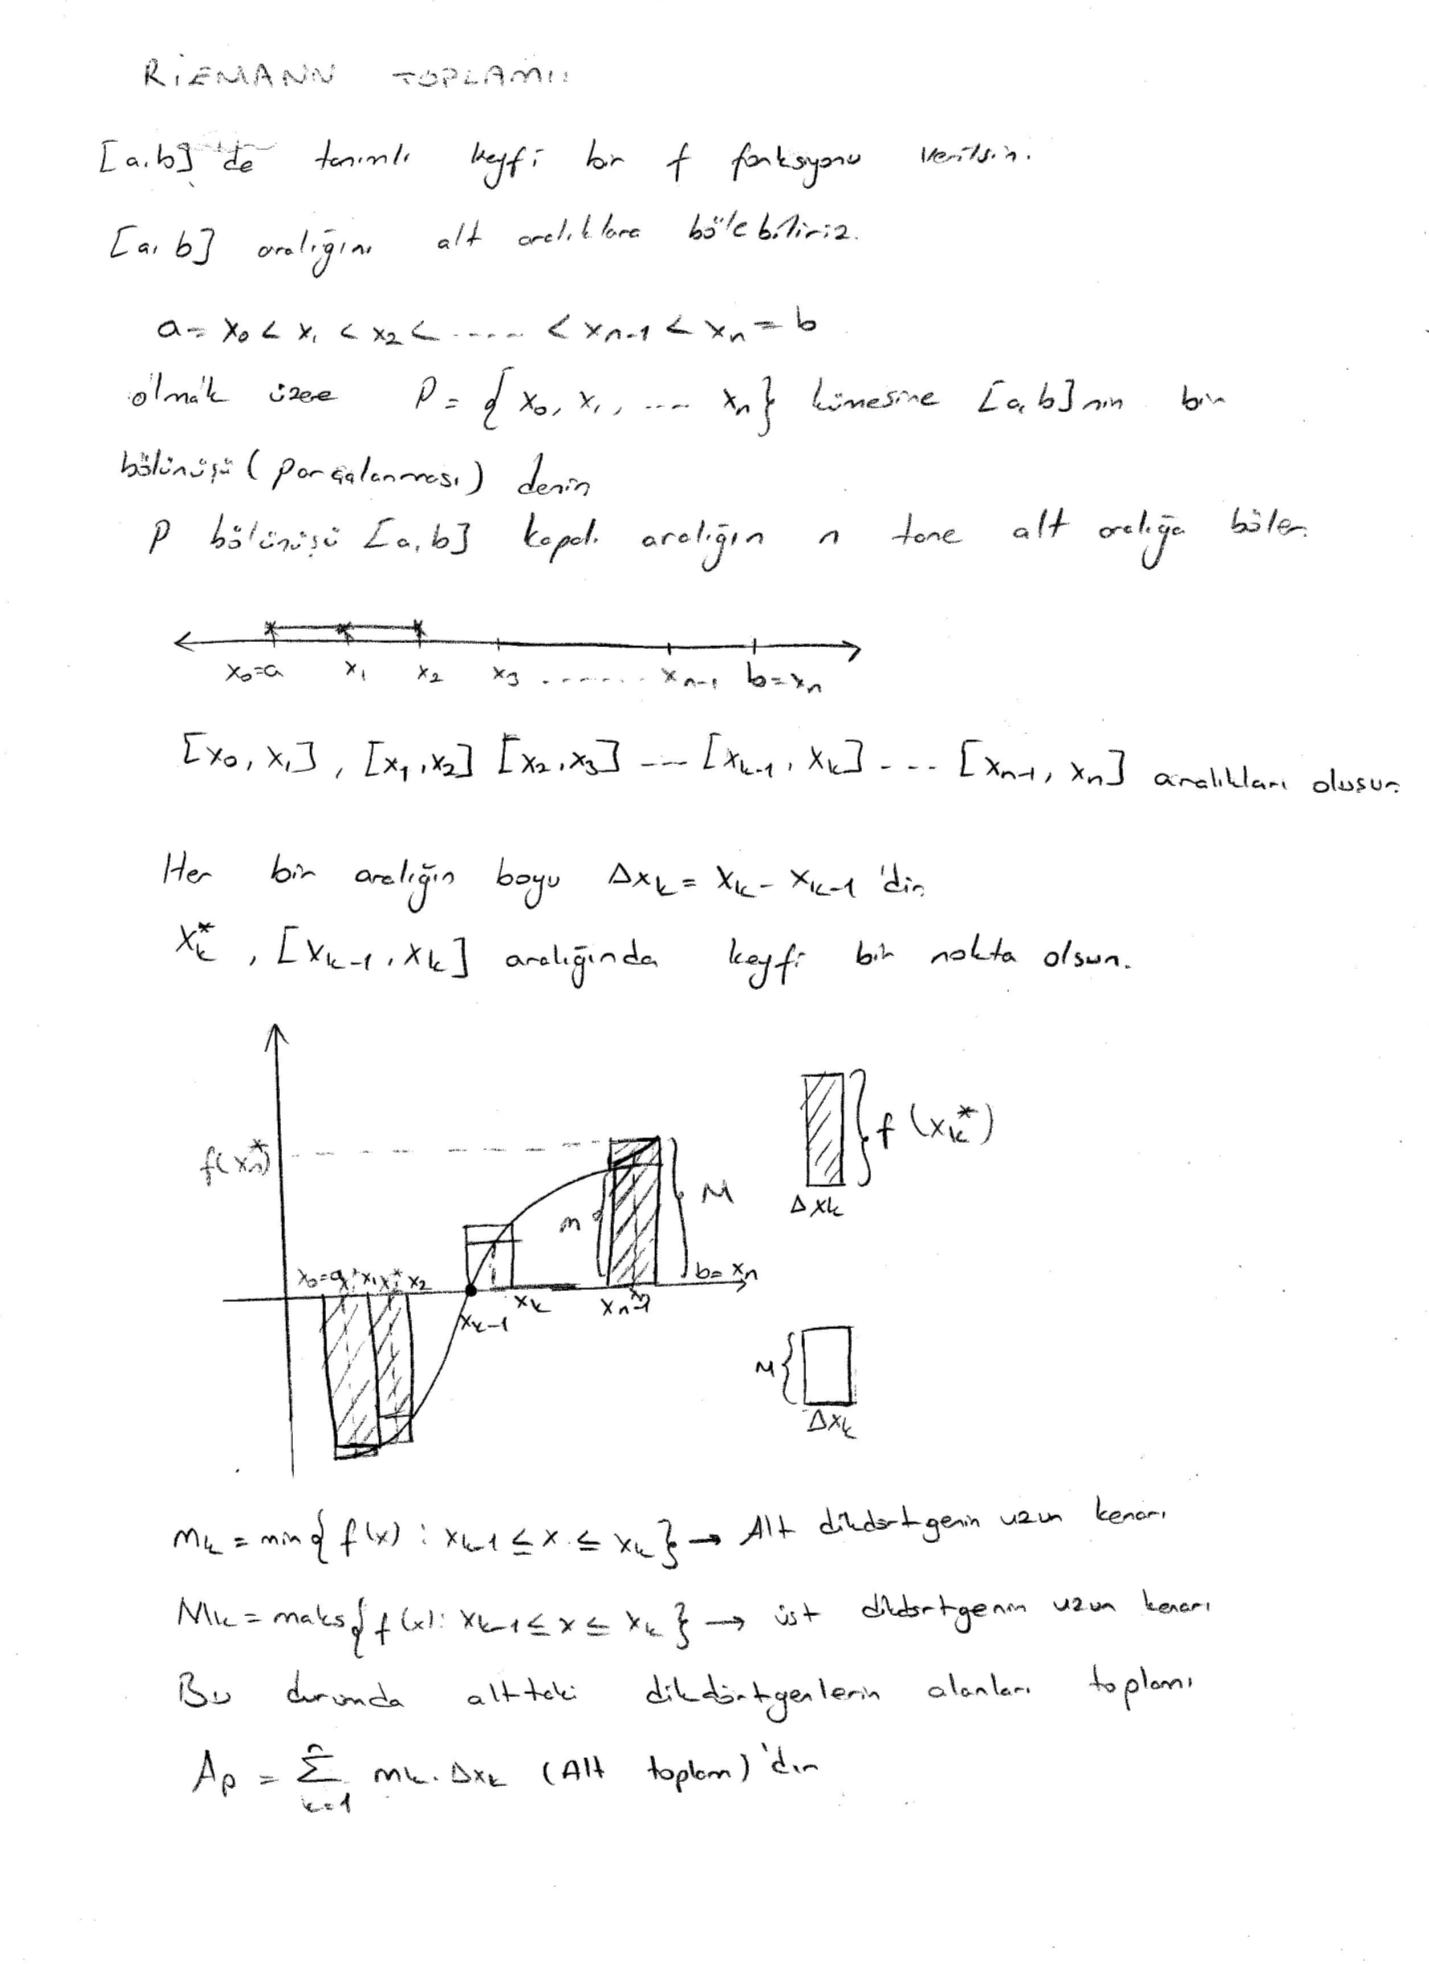 RİEMANN TOPLAMI:
[a,b] de tanımlı keyfi bir f fonksiyonu verilsin.
[a,b] aralığını alt aralıklara bölebiliriz.
a = x₀ < x₁ < x₂ < ..... < xₙ₋₁ < xₙ = b
olmak üzere P = { x₀, x₁, .... xₙ} kümesine [a,b]nin bir
bölünüşü (parçalanması) denir
P bölünüşü [a,b] kapalı aralığın n tane alt aralığa böler.
x₀=a x₁ x₂ x₃ ........ xₙ₋₁ b=xₙ
[x₀, x₁], [x₁,x₂] [x₂,x₃] --- [xₖ₋₁, xₖ] --- [xₙ₋₁, xₙ] aralıkları oluşur
Her bir aralığın boyu Δxₖ = xₖ - xₖ₋₁ 'dir
xₖ*, [xₖ₋₁, xₖ] aralığında keyfi bir nokta olsun.
f(xₖ*)
Δxₖ
f(xₙ*)
m
M
x₀=a x₁ x₂
b=xₙ
xₖ₋₁
xₖ
xₙ₋₁
M
Δxₖ
mₖ = min{ f(x) : xₖ₋₁ ≤ x ≤ xₖ } → Alt dikdörtgenin uzun kenarı
Mₖ = maks{ f(x): xₖ₋₁ ≤ x ≤ xₖ } → üst dikdörtgenin uzun kenarı
Bu durumda alttaki dikdörtgenlerin alanları toplamı
Aₚ = Σₖ₌₁ⁿ mₖ. Δxₖ (Alt toplam)'dır